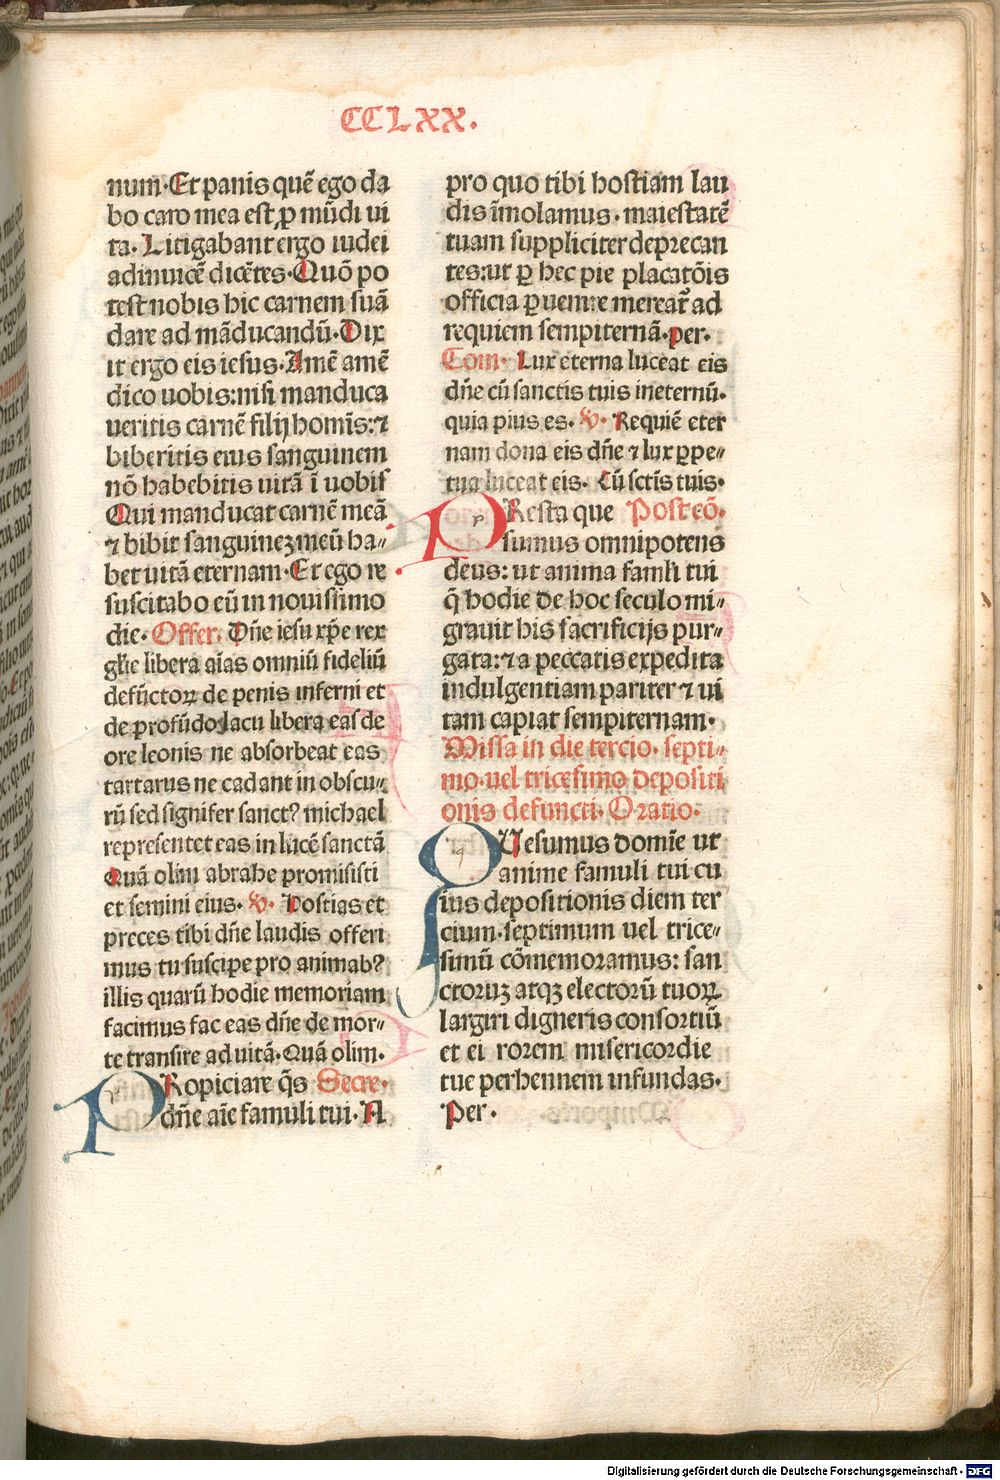 CCLXX.
num. Et panis quē ego da
bo caro mea est ꝓ mūdi ui
ta. Litigabant ergo iudei
adinuicē dicētes. Quō po
test nobis hic carnem suā
dare ad māducandū. Dix
it ergo eis iesus. Amē amē
dico uobis: nisi manduca
ueritis carnē filij homīs: ⁊
biberitis eius sanguinem
nō habebitis uitā ī uobis
Qui manducat carnē meā
⁊ bibit sanguineꝫ meū ha⸗
bet uitā eternam. Et ego re
suscitabo eū in nouissimo
die. Offer. Dn̄e iesu xp̄e rex
gl̄ie libera aīas omniū fideliū
defūctoꝝ de penis inferni et
de profūdo lacu libera eas de
ore leonis ne absorbeat eas
tartarus ne cadant in obscu⸗
rū sed signifer sanctꝰ michael
representet eas in lucē sanctā
Quā olim abrahe promisisti
et semini eius. ℣. Hostias et
preces tibi dn̄e laudis offeri
mus tu suscipe pro animabꝰ
illis quarū hodie memoriam
facimus fac eas dn̄e de mor⸗
te transire ad uitā. Quā olim.
PRopiciare q̄s Secre.
dn̄e aīe famuli tui. N
pro quo tibi hostiam lau
dis īmolamus. maiestatē
tuam suppliciter deprecan
tes: ut ꝑ hec pie placatōis
officia ꝑuenire mereat̄ ad
requiem sempiternā. per.
Com. Lux eterna luceat eis
dn̄e cū sanctis tuis in eternū.
quia pius es. ℣. Requiē eter
nam dona eis dn̄e ⁊ lux ꝑpe⸗
tua luceat eis. Cū sctīs tuis.
PResta que Postcō.
sumus omnipotens
deus: ut anima famli tui
q̄ hodie de hoc seculo mi⸗
grauit his sacrificijs pur⸗
gata: ⁊ a peccatis expedita
indulgentiam pariter ⁊ ui
tam capiat sempiternam.
Missa in die tercio. septi⸗
mo. uel tricesimo depositi
onis defuncti. Oratio.
QUesumus domīe ut
anime famuli tui cu
ius depositionis diem ter
cium. septimum uel trice⸗
simū cōmemoramus: san
ctoruꝫ atqꝫ electorū tuoꝝ
largiri digneris consortiū
et ei rorem misericordie
tue perhennem infundas.
Per.
Digitalisierung gefördert durch die Deutsche Forschungsgemeinschaft - DFG